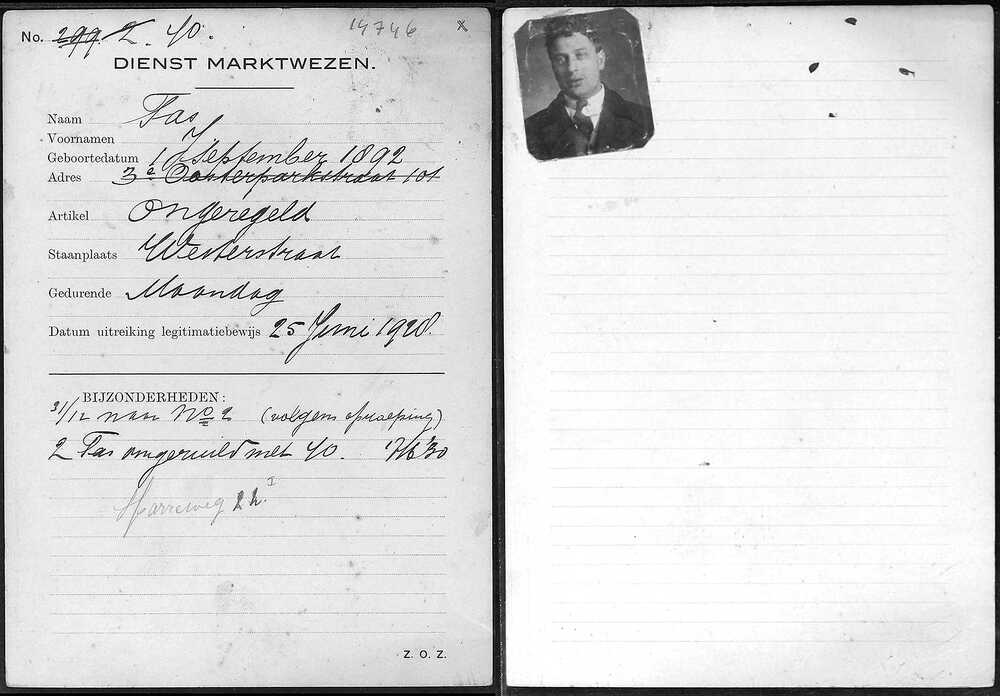 No. 299 2. 40. 14746 x
DIENST MARKTWEZEN.
Naam Fas
Voornamen J
Geboortedatum 1 September 1892
Adres 3e Oosterparkstraat 101
Artikel Ongeregeld
Staanplaats Westerstraat
Gedurende Maandag
Datum uitreiking legitimatiebewijs 25 Juni 1928.
BIJZONDERHEDEN:
31/12 naar No 2 (volgens oproeping)
2 Fas omgeruild met 40. 17/6 '30
Z. O. Z.